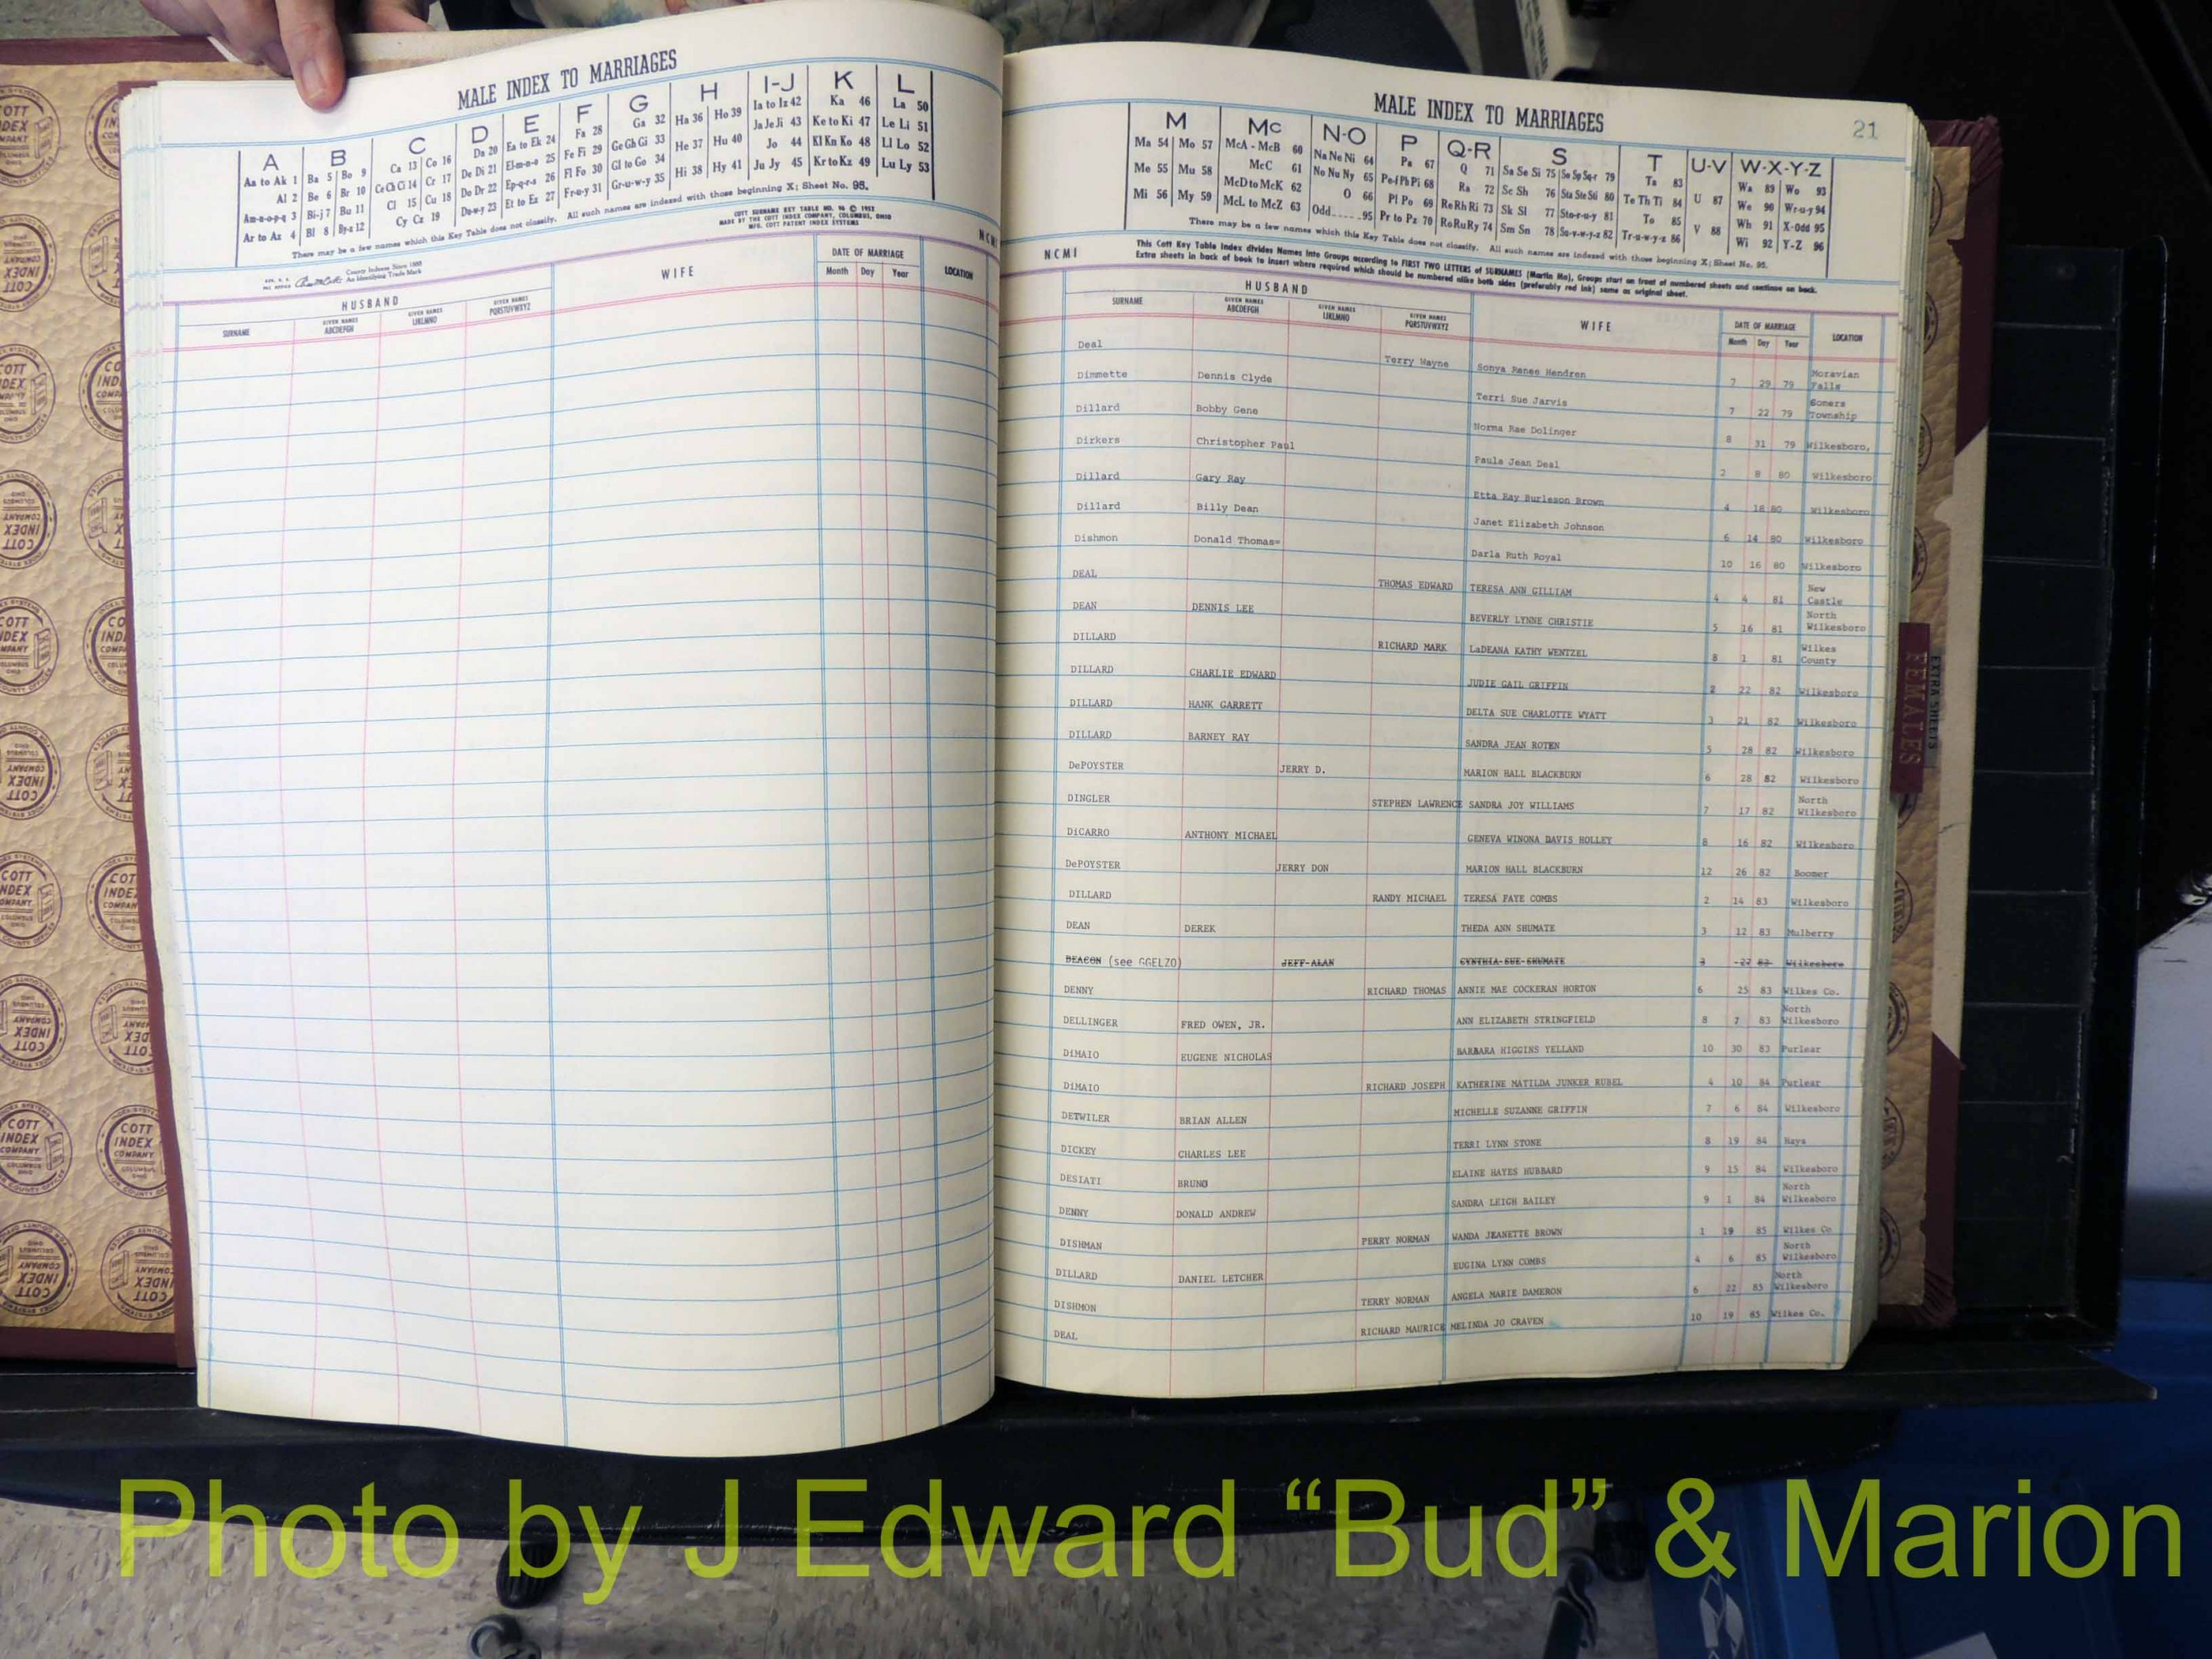 MALE INDEX TO MARRIAGES
A B C D E F G H I-J K L
Aa to Ak 1 Ba 5 Bo 9 Ca 13 Co 16 Da 20 Ea to Ek 24 Fa 28 Ga 32 Ha 36 Ho 39 Ia to Iz 42 Ka 46 La 50
Al 2 Be 6 Br 10 Ce Ch Ci 14 Cr 17 De Di 21 El-m-n-o 25 Fe Fi 29 Ge Gh Gi 33 He 37 Hu 40 Ja Je Ji 43 Ke to Ki 47 Le Li 51
Am-n-o-p-q 3 Bi-j 7 Bu 11 Cl 15 Cu 18 Do Dr 22 Ep-q-r-s 26 Fl Fo 30 Gl to Go 34 Hi 38 Hy 41 Jo 44 Kl Kn Ko 48 Ll Lo 52
Ar to Az 4 Bl 8 By-z 12 Cy Cz 19 Du-w-y 23 Et to Ez 27 Fr-u-y 31 Gr-u-w-y 35 Ju Jy 45 Kr to Kz 49 Lu Ly 53
There may be a few names which this Key Table does not classify. All such names are indexed with those beginning X; Sheet No. 95.
COTT SURNAME KEY TABLE NO. 96 © 1953
MADE BY THE COTT INDEX COMPANY, COLUMBUS, OHIO
MFG. COTT PATENT INDEX SYSTEMS
County Indexes Since 1888
An Identifying Trade Mark
HUSBAND WIFE DATE OF MARRIAGE LOCATION
SURNAME GIVEN NAMES ABCDEFGH GIVEN NAMES IJKLMNO GIVEN NAMES PQRSTUVWXYZ Month Day Year
MALE INDEX TO MARRIAGES 21
M Mc N-O P Q-R S T U-V W-X-Y-Z
Ma 54 Mo 57 McA - McB 60 Na Ne Ni 64 Pa 67 Q 71 Sa Se Si 75 So Sp Sq-r 79 Ta 83 U 87 Wa 89 Wo 93
Me 55 Mu 58 McC 61 No Nu Ny 65 Pe-f Ph Pi 68 Ra 72 Sc Sh 76 Sta Ste Sti 80 Te Th Ti 84 V 88 We 90 Wr-u-y 94
Mi 56 My 59 McD to McK 62 O 66 Pl Po 69 Re Rh Ri 73 Sk Sl 77 Sto-r-u-y 81 To 85 Wh 91 X-Odd 95
McL to McZ 63 Odd 95 Pr to Pz 70 Ro Ru Ry 74 Sm Sn 78 Su-v-w-y-z 82 Tr-u-w-y-z 86 Wi 92 Y-Z 96
There may be a few names which this Key Table does not classify. All such names are indexed with those beginning X; Sheet No. 95.
NCMI This Cott Key Table Index divides Names into Groups according to FIRST TWO LETTERS of SURNAMES (Martin Ma). Groups start on front of numbered sheets and continue on back.
Extra sheets in back of book to insert where required which should be numbered alike both sides (preferably red ink) same as original sheet.
HUSBAND WIFE DATE OF MARRIAGE LOCATION
SURNAME GIVEN NAMES ABCDEFGH GIVEN NAMES IJKLMNO GIVEN NAMES PQRSTUVWXYZ Month Day Year
Deal Terry Wayne Sonya Renee Hendren 7 29 79 Moravian Falls
Dimmette Dennis Clyde Terri Sue Jarvis 7 22 79 Somers Township
Dillard Bobby Gene Norma Rae Dolinger 8 31 79 Wilkesboro,
Dirkers Christopher Paul Paula Jean Deal 2 8 80 Wilkesboro
Dillard Gary Ray Etta Kay Burleson Brown 4 18 80 Wilkesboro
Dillard Billy Dean Janet Elizabeth Johnson 6 14 80 Wilkesboro
Dishmon Donald Thomas= Darla Ruth Royal 10 16 80 Wilkesboro
DEAL THOMAS EDWARD TERESA ANN GILLIAM 4 4 81 New Castle
DEAN DENNIS LEE BEVERLY LYNNE CHRISTIE 5 16 81 North Wilkesboro
DILLARD RICHARD MARK LaDEANA KATHY WENTZEL 8 1 81 Wilkes County
DILLARD CHARLIE EDWARD JUDIE GAIL GRIFFIN 2 22 82 Wilkesboro
DILLARD HANK GARRETT DELTA SUE CHARLOTTE WYATT 3 21 82 Wilkesboro
DILLARD BARNEY RAY SANDRA JEAN ROTEN 5 28 82 Wilkesboro
DePOYSTER JERRY D. MARION HALL BLACKBURN 6 28 82 Wilkesboro
DINGLER STEPHEN LAWRENCE SANDRA JOY WILLIAMS 7 17 82 North Wilkesboro
DiCARRO ANTHONY MICHAEL GENEVA WINONA DAVIS HOLLEY 8 16 82 Wilkesboro
DePOYSTER JERRY DON MARION HALL BLACKBURN 12 26 82 Boomer
DILLARD RANDY MICHAEL TERESA FAYE COMBS 2 14 83 Wilkesboro
DEAN DEREK THEDA ANN SHUMATE 3 12 83 Mulberry
DEACON (see GGELZO) JEFF-ALAN CYNTHIA-SUE-SHUMATE 3 -27 83 Wilkesboro
DENNY RICHARD THOMAS ANNIE MAE COCKERAN HORTON 6 25 83 Wilkes Co.
DELLINGER FRED OWEN, JR. ANN ELIZABETH STRINGFIELD 8 7 83 North Wilkesboro
DiMAIO EUGENE NICHOLAS BARBARA HIGGINS YELLAND 10 30 83 Purlear
DiMAIO RICHARD JOSEPH KATHERINE MATILDA JUNKER RUBEL 4 10 84 Purlear
DETWILER BRIAN ALLEN MICHELLE SUZANNE GRIFFIN 7 6 84 Wilkesboro
DICKEY CHARLES LEE TERRI LYNN STONE 8 19 84 Hays
DESIATI BRUNO ELAINE HAYES HUBBARD 9 15 84 Wilkesboro
DENNY DONALD ANDREW SANDRA LEIGH BAILEY 9 1 84 North Wilkesboro
DISHMAN PERRY NORMAN WANDA JEANETTE BROWN 1 19 85 Wilkes Co
DILLARD DANIEL LETCHER EUGINA LYNN COMBS 4 6 85 North Wilkesboro
DISHMON TERRY NORMAN ANGELA MARIE DAMERON 6 22 85 North Wilkesboro
DEAL RICHARD MAURICE MELINDA JO CRAVEN 10 19 85 Wilkes Co.
EXTRA SHEETS
FEMALES
COTT INDEX COMPANY COLUMBUS OHIO
Photo by J Edward “Bud” & Marion